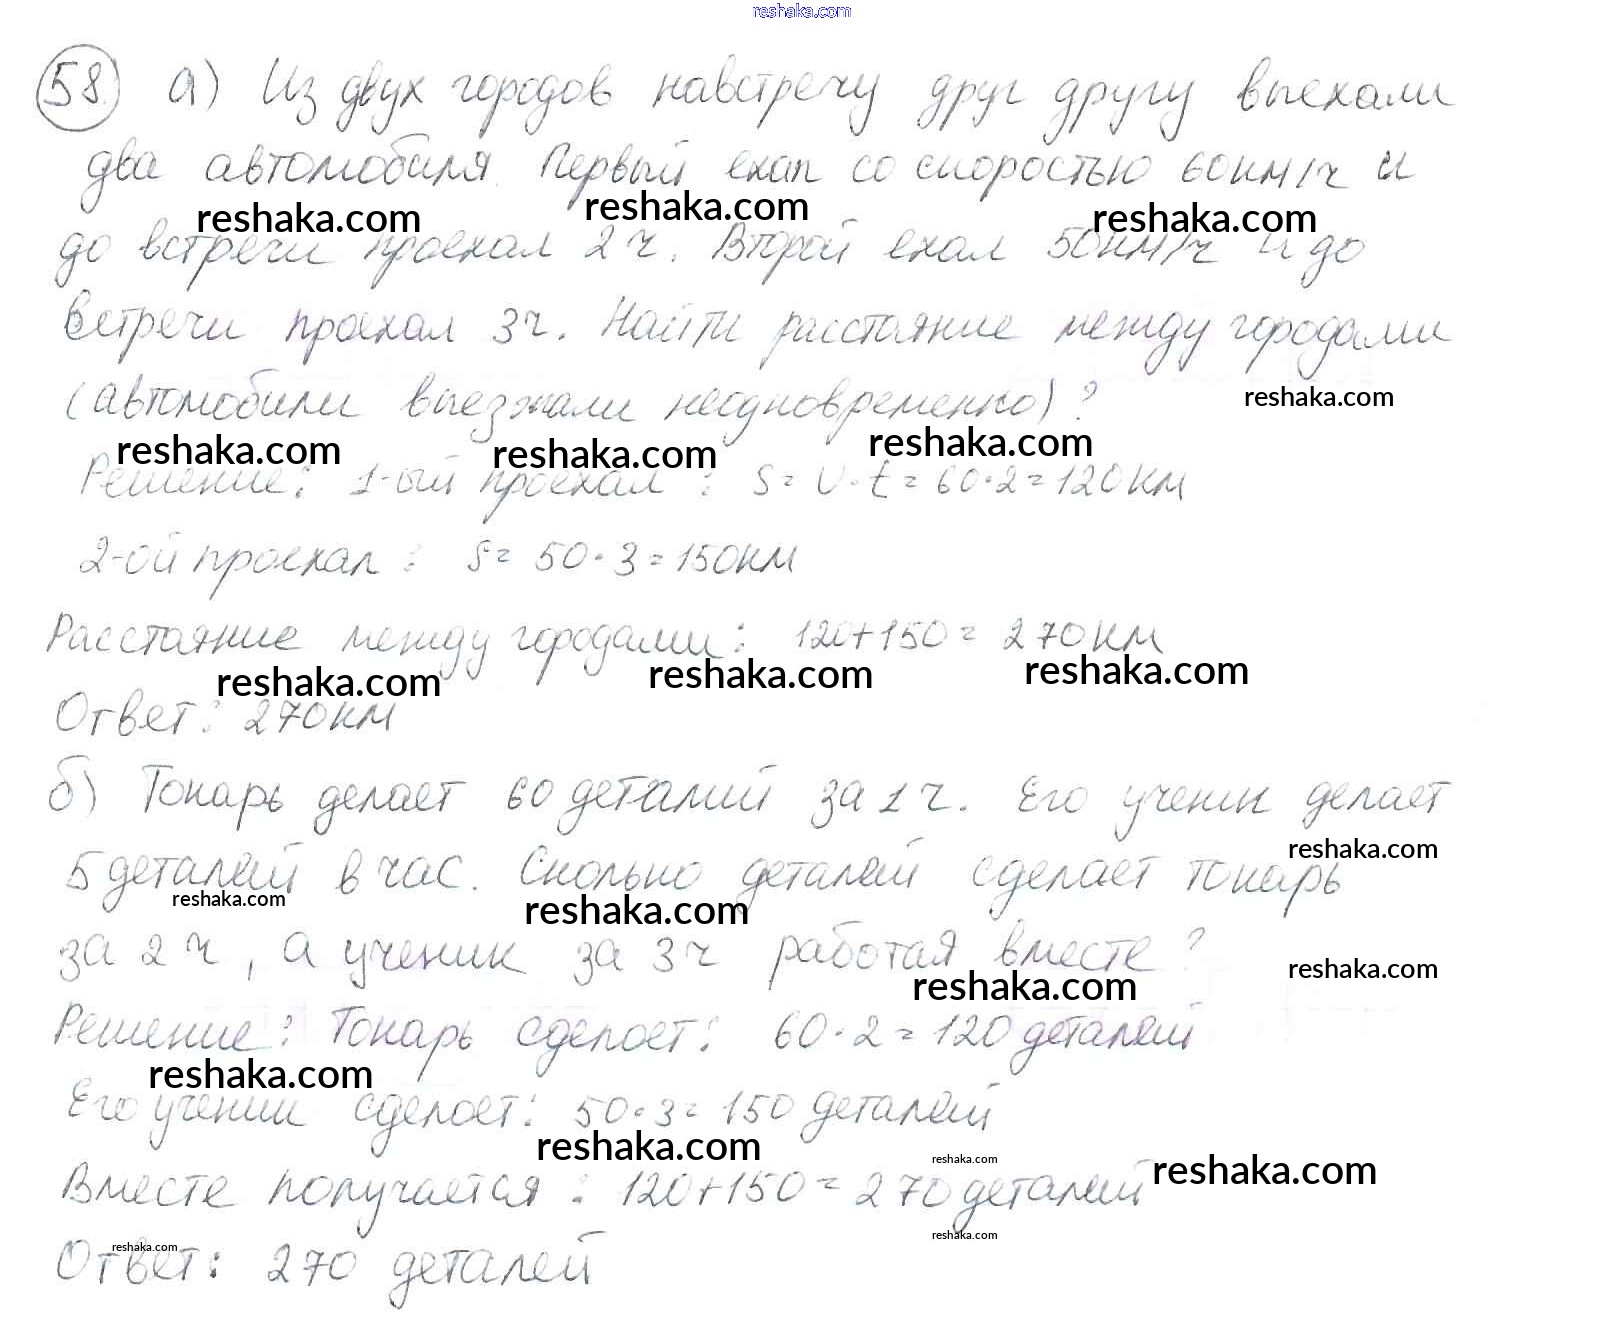 reshaka.com
58 а) Из двух городов навстречу друг другу выехали
два автомобиля. Первый ехал со скоростью 60км/ч и
reshaka.com reshaka.com reshaka.com
до встречи проехал 2 ч. Второй ехал 50км/ч и до
встречи проехал 3ч. Найти расстояние между городами
(автомобили выезжали неодновременно)?
reshaka.com
reshaka.com reshaka.com reshaka.com
Решение: 1-ый проехал: S= V·t = 60·2=120км
2-ой проехал: S= 50·3=150км
Расстояние между городами: 120+150= 270км
reshaka.com reshaka.com reshaka.com
Ответ: 270км
б) Токарь делает 60 деталий за 1 ч. Его ученик делает
reshaka.com
5 деталей в час. Сколько деталей сделает токарь
reshaka.com reshaka.com
за 2 ч, а ученик за 3ч работая вместе?
reshaka.com reshaka.com
Решение: Токарь сделоет: 60·2=120 деталей
reshaka.com
Его ученик сделоет: 50·3=150 деталей
reshaka.com reshaka.com reshaka.com
Вместе получается: 120+150=270 деталей
reshaka.com reshaka.com
Ответ: 270 деталей